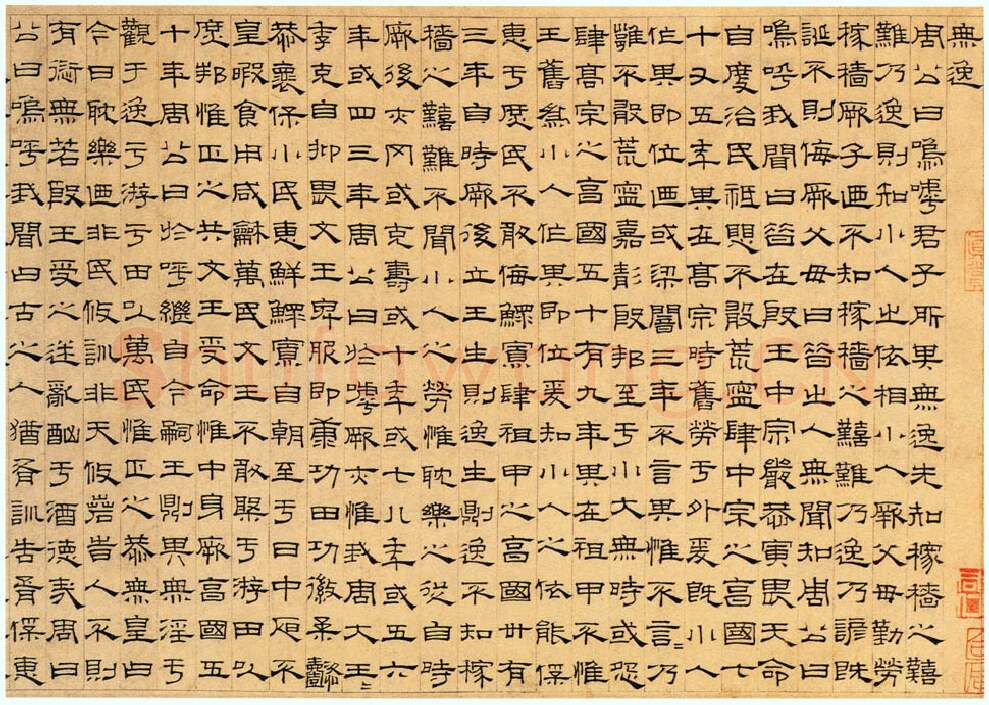 無逸
周公曰嗚嘑君子所其無逸先知稼穡之囏
難乃逸則知小人之依相小人厥父母勤勞
稼穡厥子迺不知稼穡之囏難乃逸乃諺既
誕不則侮厥父母曰昔之人無聞知周公曰
嗚呼我聞曰昔在殷王中宗嚴恭寅畏天命
自度治民祗愳不敢荒寧肆中宗之享國七
十又五年其在高宗時舊勞于外爰既小人
作其即位迺或梁闇三年不言其惟不言=乃
雝不敢荒寧嘉彭殷邦至于小大無時或怨
肆高宗之享國五十有九年其在祖甲不惟
王舊為小人作其即位爰知小人之依能保
惠于庶民不敢侮鰥寡肆祖甲之享國卅有
三年自時厥後立王生則逸生則逸不知稼
穡之囏難不聞小人之勞惟耽樂之從自時
厥後亦罔或克壽或十年或七八年或五六
年或四三年周公曰於嘑厥亦惟我周大王=
季克自抑畏文王卑服即康功田功徽柔懿
恭襄保小民惠鮮鰥寡自朝至于日中昃不
皇暇食用咸龢萬民文王不敢槃于游田以
庶邦惟正之共文王受命惟中身厥享國五
十年周公曰於呼繼自今嗣王則其無淫于
觀于逸于游于田以萬民惟正之恭無皇曰
今日耽樂迺非民攸訓非天攸若時人不則
有愆無若殷王受之迷亂酗于酒德哉周曰
公曰嗚呼我聞曰古之人猶胥訓告胥保惠
shufawang.cn